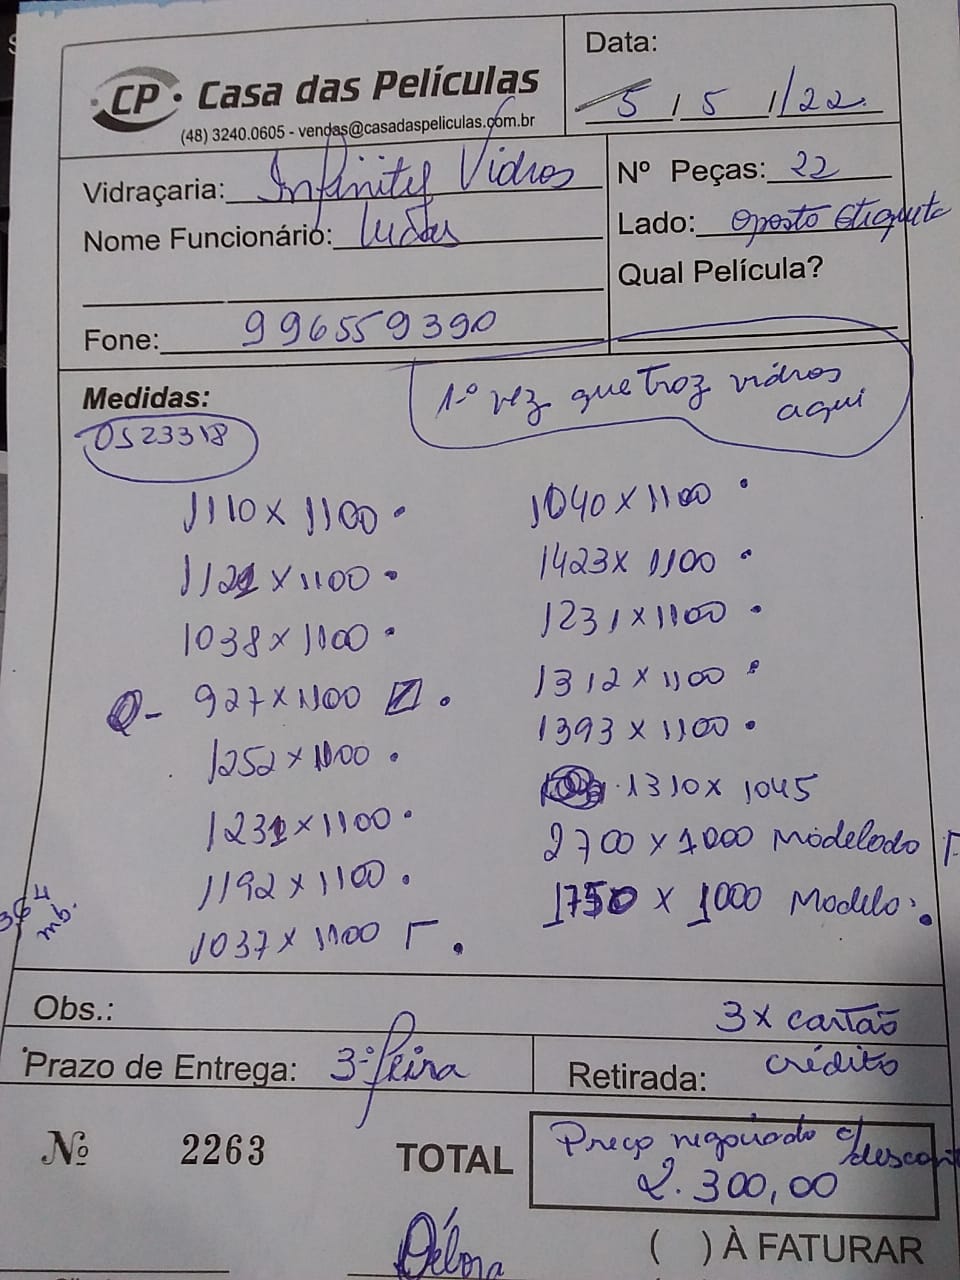 CP • Casa das Películas
(48) 3240.0605 - vendas@casadaspeliculas.com.br
Data:
5 / 5 / 22
Vidraçaria: Infinity Vidros
Nome Funcionário: Lucas
Fone: 996559390
Nº Peças: 22
Lado: oposto etiqueta
Qual Película?
Medidas:
1º vez que troz vidros
aqui
0523318
1110 x 1100 •
1121 x 1100 •
1038 x 1100 •
927 x 1100 •
1252 x 1100 •
1231 x 1100 •
1192 x 1100 •
1037 x 1100 •
1040 x 1100 •
1423 x 1100 •
1231 x 1100 •
1312 x 1100 •
1393 x 1100 •
1310 x 1045
2700 x 1000 Modelado
1750 x 1000 Modelo •
364
mb.
Obs.:
3x cartão
crédito
Prazo de Entrega: 3ª feira
Retirada:
Nº 2263
TOTAL
Preço negociado c/
descont
2.300,00
Débora
( ) À FATURAR